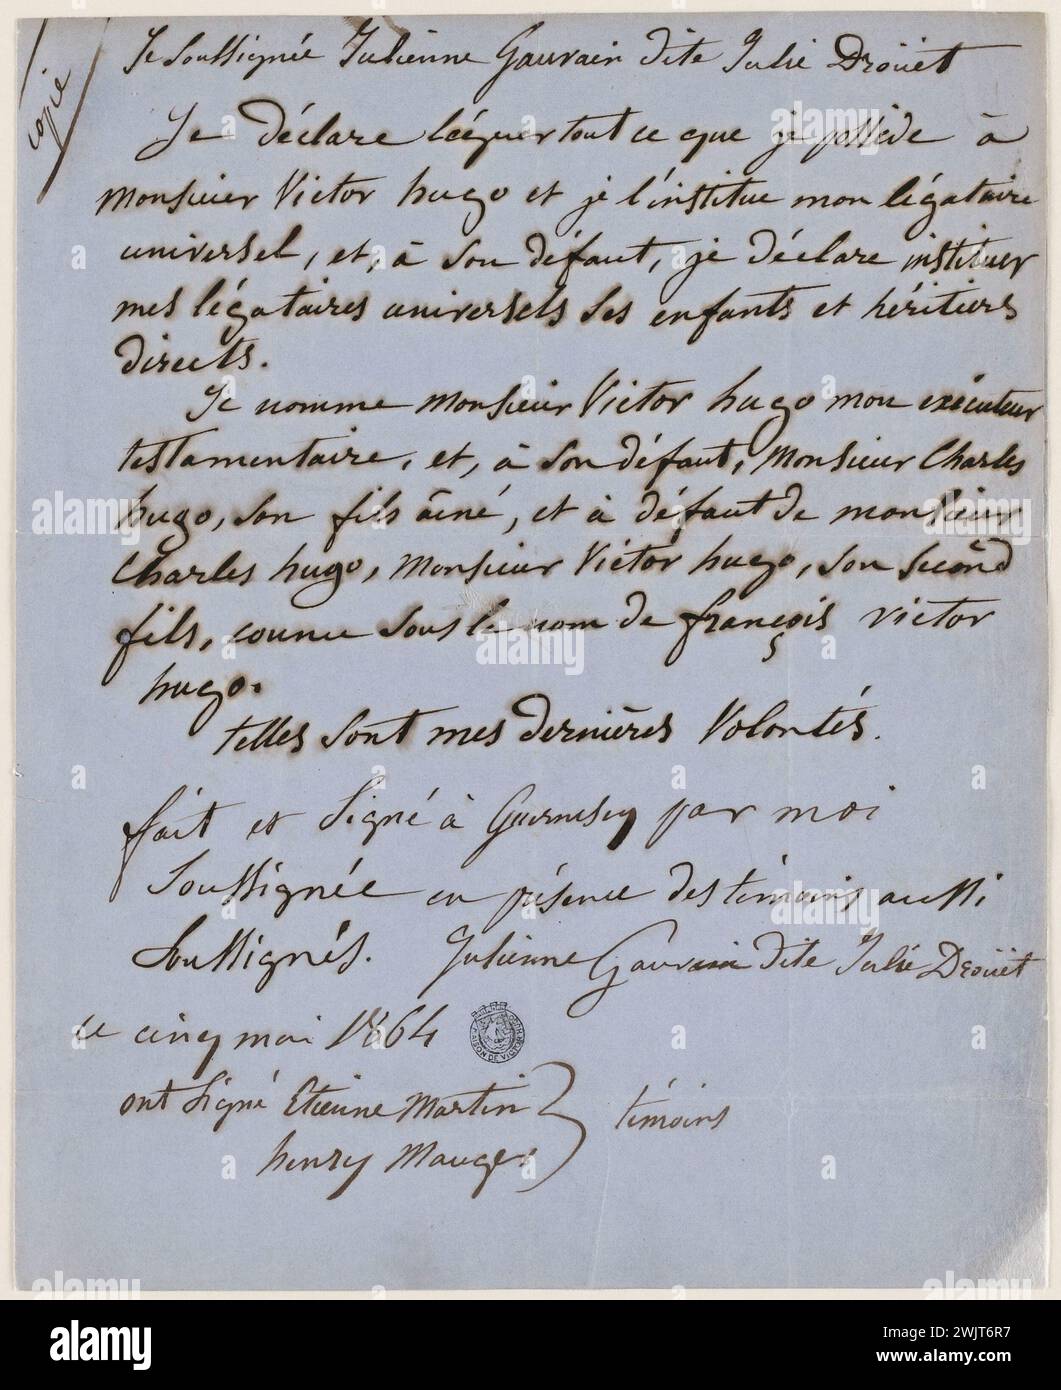 copie
Je soussignée Julienne Gauvain dite Julie Droüet
Je déclare léguer tout ce que je possède à
Monsieur Victor hugo et je l'institue mon légataire
universel, et, à son défaut, je déclare instituer
mes légataires universels ses enfants et héritiers
directs.
Je nomme Monsieur Victor hugo mon exécuteur
testamentaire, et, à son défaut, Monsieur Charles
hugo, son fils âiné, et à défaut de monsieur
Charles hugo, Monsieur Victor hugo, son second
fils, connu sous le nom de françois victor
hugo.
telles sont mes dernières volontés.
fait et signé à Guernesey par moi
soussignée en présence des témoins aussi
soussignés. Julienne Gauvain dite Julie Droüet
ce cinq mai 1864
MAISON DE VICTOR
ont signé Etienne Martin
témoins
henry Mauger
alamy
Image ID: 2WJT6R7
www.alamy.com